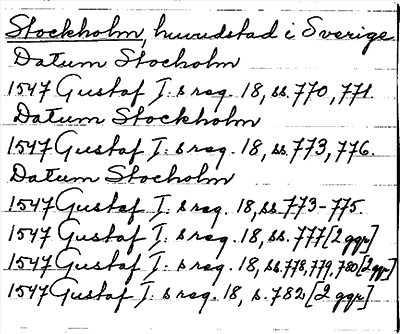 Stockholm, huvudstad i Sverige
Datum Stocholm
1547 Gustaf I:s reg. 18, ss. 770, 771.
Datum Stockholm
1547 Gustaf I:s reg. 18, ss. 773, 776.
Datum Stocholm
1547 Gustaf I:s reg. 18, ss. 773-775.
1547 Gustaf I:s reg. 18, ss. 777 [2 ggr]
1547 Gustaf I:s reg. 18, ss. 778, 779, 780 [2 ggr]
1547 Gustaf I:s reg. 18, s. 782 [2 ggr]